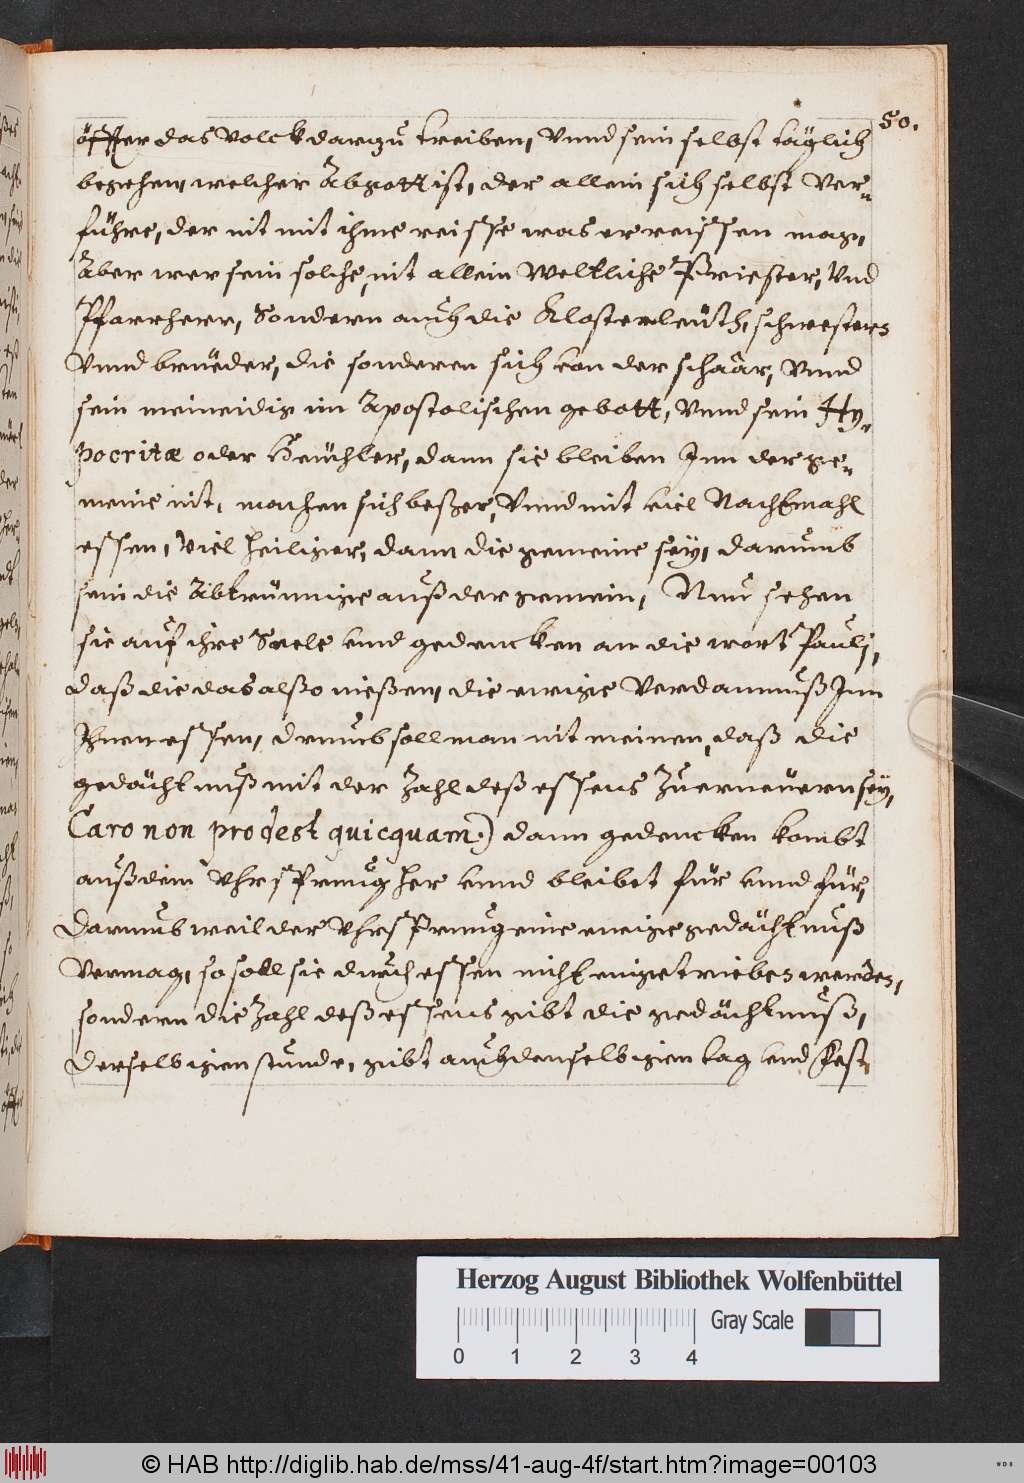 50.
öffter das volck darzu treiben, vnnd sein selbst täglich
begehen, welcher Abgott ist, der allein sich selbst ver-
führe, der nit mit ihme reisse was er reissen mag,
Aber wer sein solche, nit allein Weltliche Priester, Vnd
Pfarrherr, Sondern auch die Klosterleüth, schwestern
Vnnd brüeder, die sonderen sich von der schaar, Vnnd
sein meineidig im Apostolischen gebott, Vnnd sein Hy-
pocritæ oder Heüchler, dann sie bleiben Inn der ge-
meine nit, machen sich beßer, Vnnd mit viel Nachtmahl
essen, Viel heiliger, dann die gemeine sey, darumb
sein die Abtrünnige auß der gemein, Nun sehen
sie auf ihre Seele vnd gedencken an die wort Paulj,
daß die das also nießen, die ewige Verdamnuß Inn
Ihnen essen, drumb soll man nit meinen, daß die
gedächtnuß mit der Zahl deß essens Zuerneüern sey,
Caro non prodest quicquam.) dann gedencken kombt
auß dem Vhrsprung her vnnd bleibet für vnnd für,
Darumb weil der Vhrsprung eine ewige gedächtnuß
Vermag, so soll sie durch essen nicht eingetrieben werden,
sondern die Zahl deß essens gibt die gedächtnuß,
Derselbigen stunde, gibt auch denselbigen tag vnd Fest
Herzog August Bibliothek Wolfenbüttel
Gray Scale
0 1 2 3 4
© HAB http://diglib.hab.de/mss/41-aug-4f/start.htm?image=00103